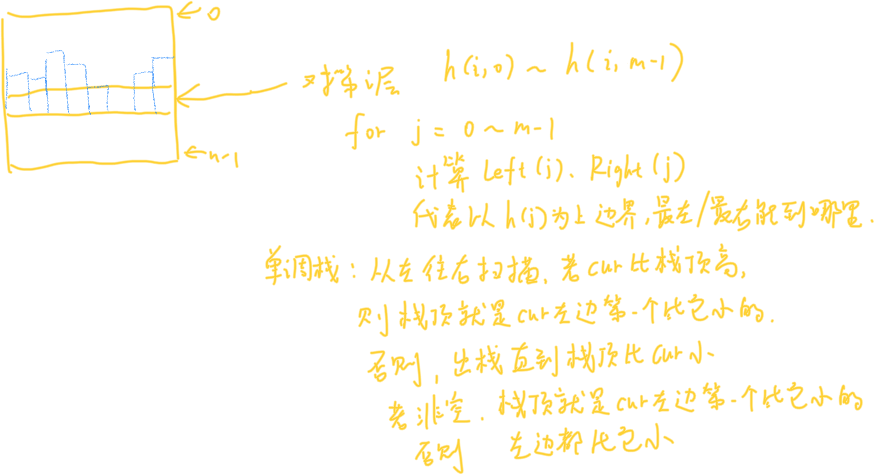 0
对第i层 h(i,0) ~ h(i,m-1)
for j = 0 ~ m-1
n-1
计算 Left(j)、Right(j)
代表以h(j)为上边界,最左/最右能到哪里.
单调栈: 从左往右扫描, 若cur比栈顶高,
则栈顶就是cur左边第一个比它小的.
否则, 出栈直到栈顶比cur小
若非空. 栈顶就是cur左边第一个比它小的
否则 左边都比它小